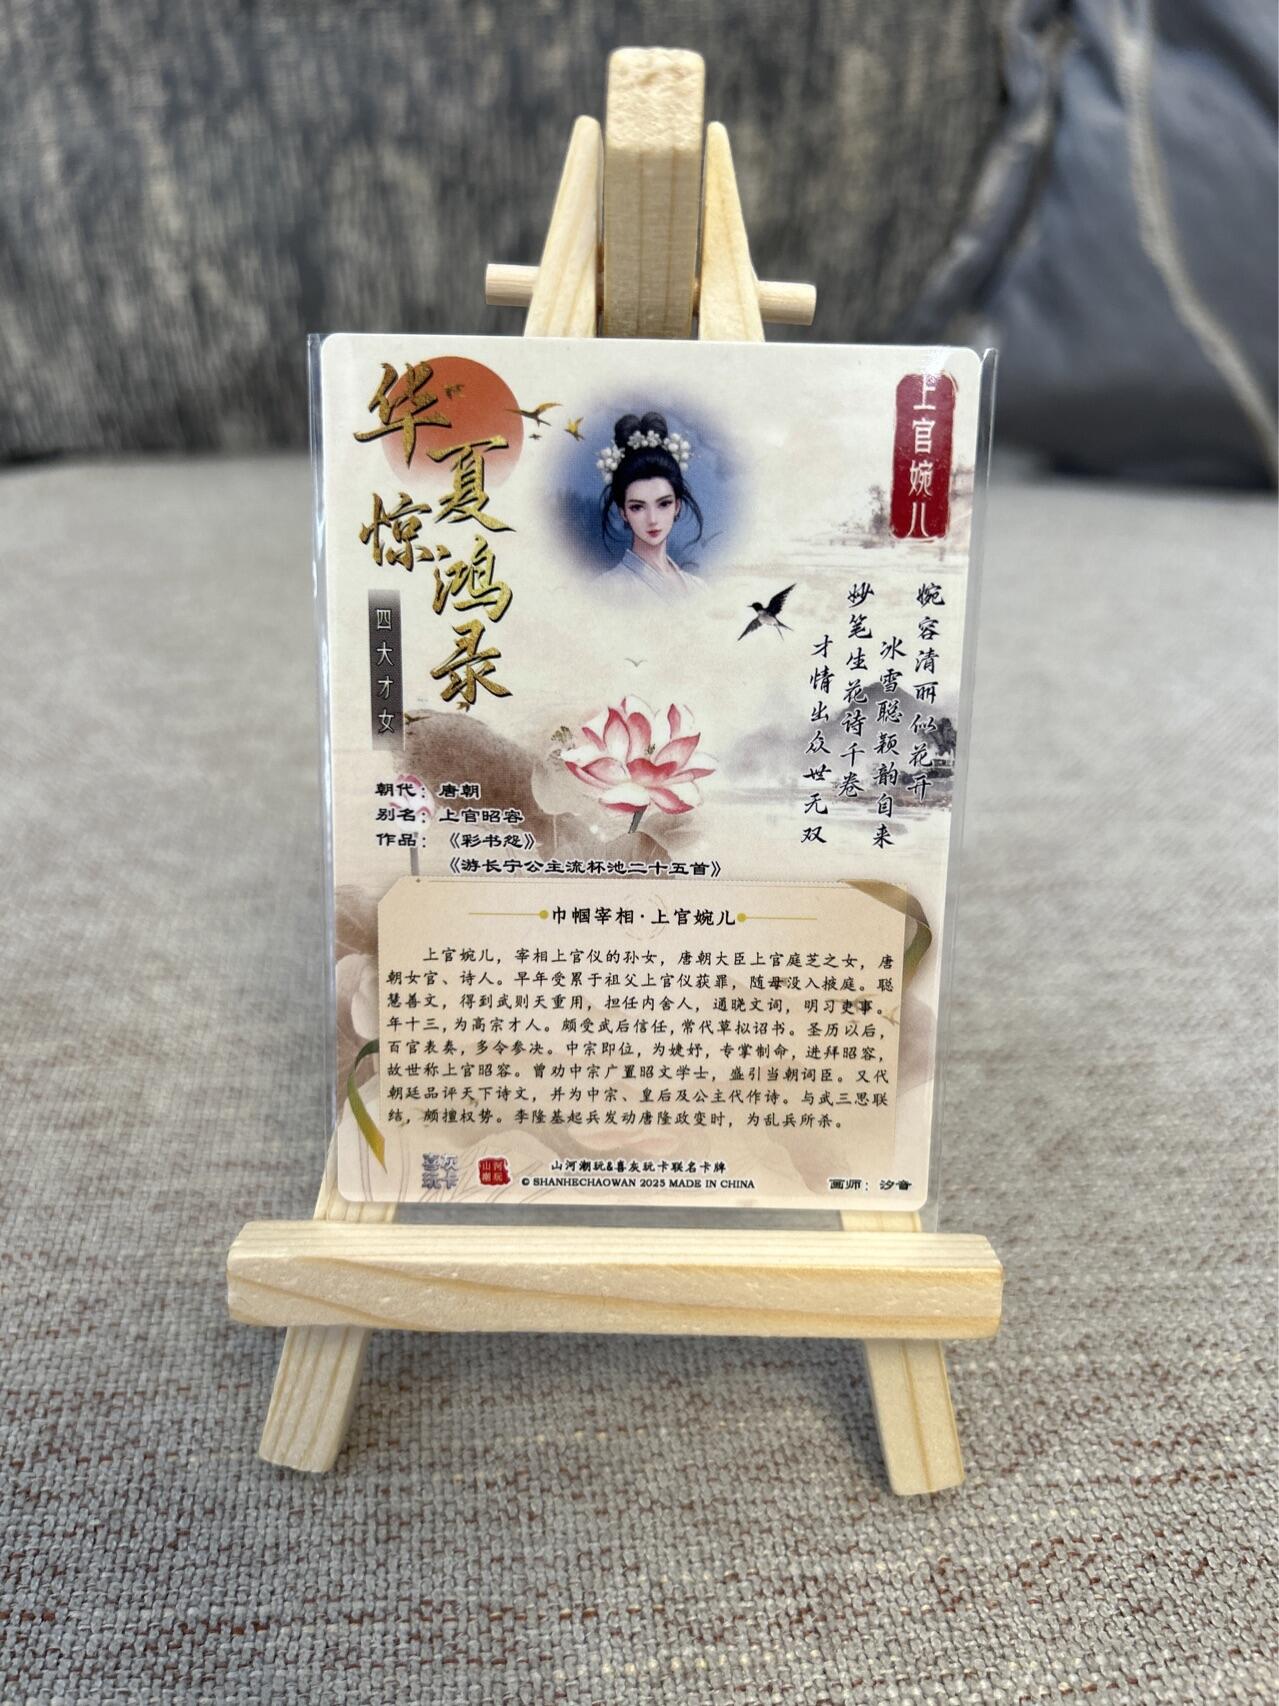 华夏
惊鸿录
四大才女
上官婉儿
婉容清丽似花开
冰雪聪颖韵自来
妙笔生花诗千卷
才情出众世无双
朝代：唐朝
别名：上官昭容
作品：《彩书怨》
《游长宁公主流杯池二十五首》
巾帼宰相·上官婉儿
上官婉儿，宰相上官仪的孙女，唐朝大臣上官庭芝之女，唐
朝女官、诗人。早年受累于祖父上官仪获罪，随母没入掖庭。聪
慧善文，得到武则天重用，担任内舍人，通晓文词，明习吏事。
年十三，为高宗才人。颇受武后信任，常代草拟诏书。圣历以后，
百官表奏，多令参决。中宗即位，为婕妤，专掌制命，进拜昭容，
故世称上官昭容。曾劝中宗广置昭文学士，盛引当朝词臣。又代
朝廷品评天下诗文，并为中宗、皇后及公主代作诗。与武三思联
结，颇擅权势。李隆基起兵发动唐隆政变时，为乱兵所杀。
喜灰
玩卡
山河
潮玩
山河潮玩&喜灰玩卡联名卡牌
© SHANHECHAOWAN 2025 MADE IN CHINA
画师：汐音